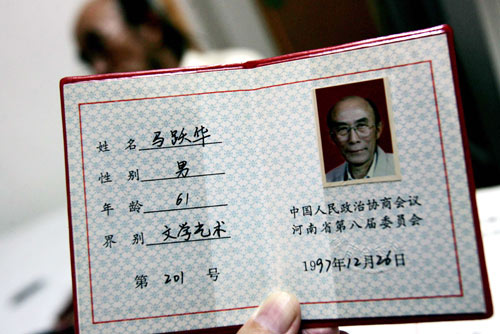 姓名 马跃华
性别 男
年龄 61
界别 文学艺术
第 201 号
中国人民政治协商会议
河南省第八届委员会
1997年12月26日